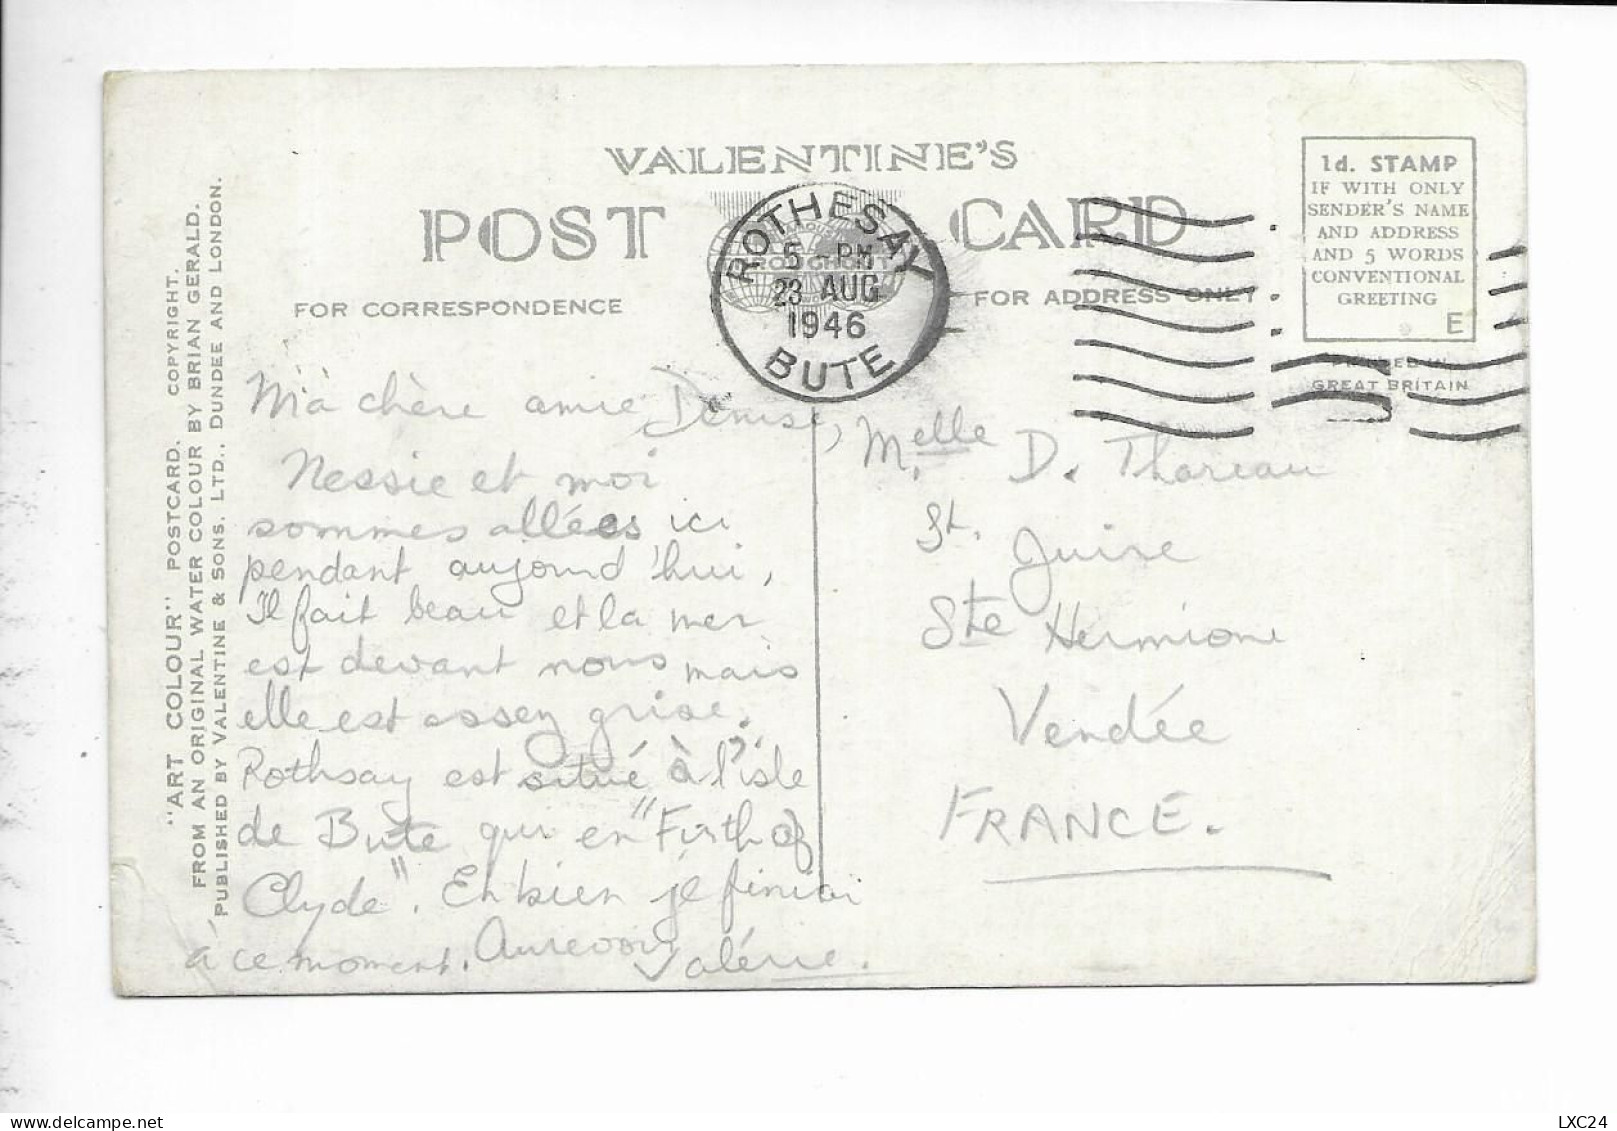 VALENTINE'S
POST CARD
FOR CORRESPONDENCE
FOR ADDRESS ONLY
ROTHESAY
5 - PM
23 AUG
1946
BUTE
1d. STAMP
IF WITH ONLY
SENDER'S NAME
AND ADDRESS
AND 5 WORDS
CONVENTIONAL
GREETING
E
PRINTED IN
GREAT BRITAIN
"ART COLOUR" POSTCARD. COPYRIGHT.
FROM AN ORIGINAL WATER COLOUR BY BRIAN GERALD.
PUBLISHED BY VALENTINE & SONS. LTD., DUNDEE AND LONDON.
Ma chère amie Denise,
Nessie et moi
sommes allées ici
pendant aujourd'hui,
Il fait beau et la mer
est devant nous mais
elle est assez grise.
Rothsay est situé à l'isle
de Bute qui en "Firth of
Clyde". Eh bien je finirai
à ce moment. Aurevoir
Valérie.
Melle D. Thareau
St. Juire
Ste Hermione
Vendée
FRANCE.
LXC24